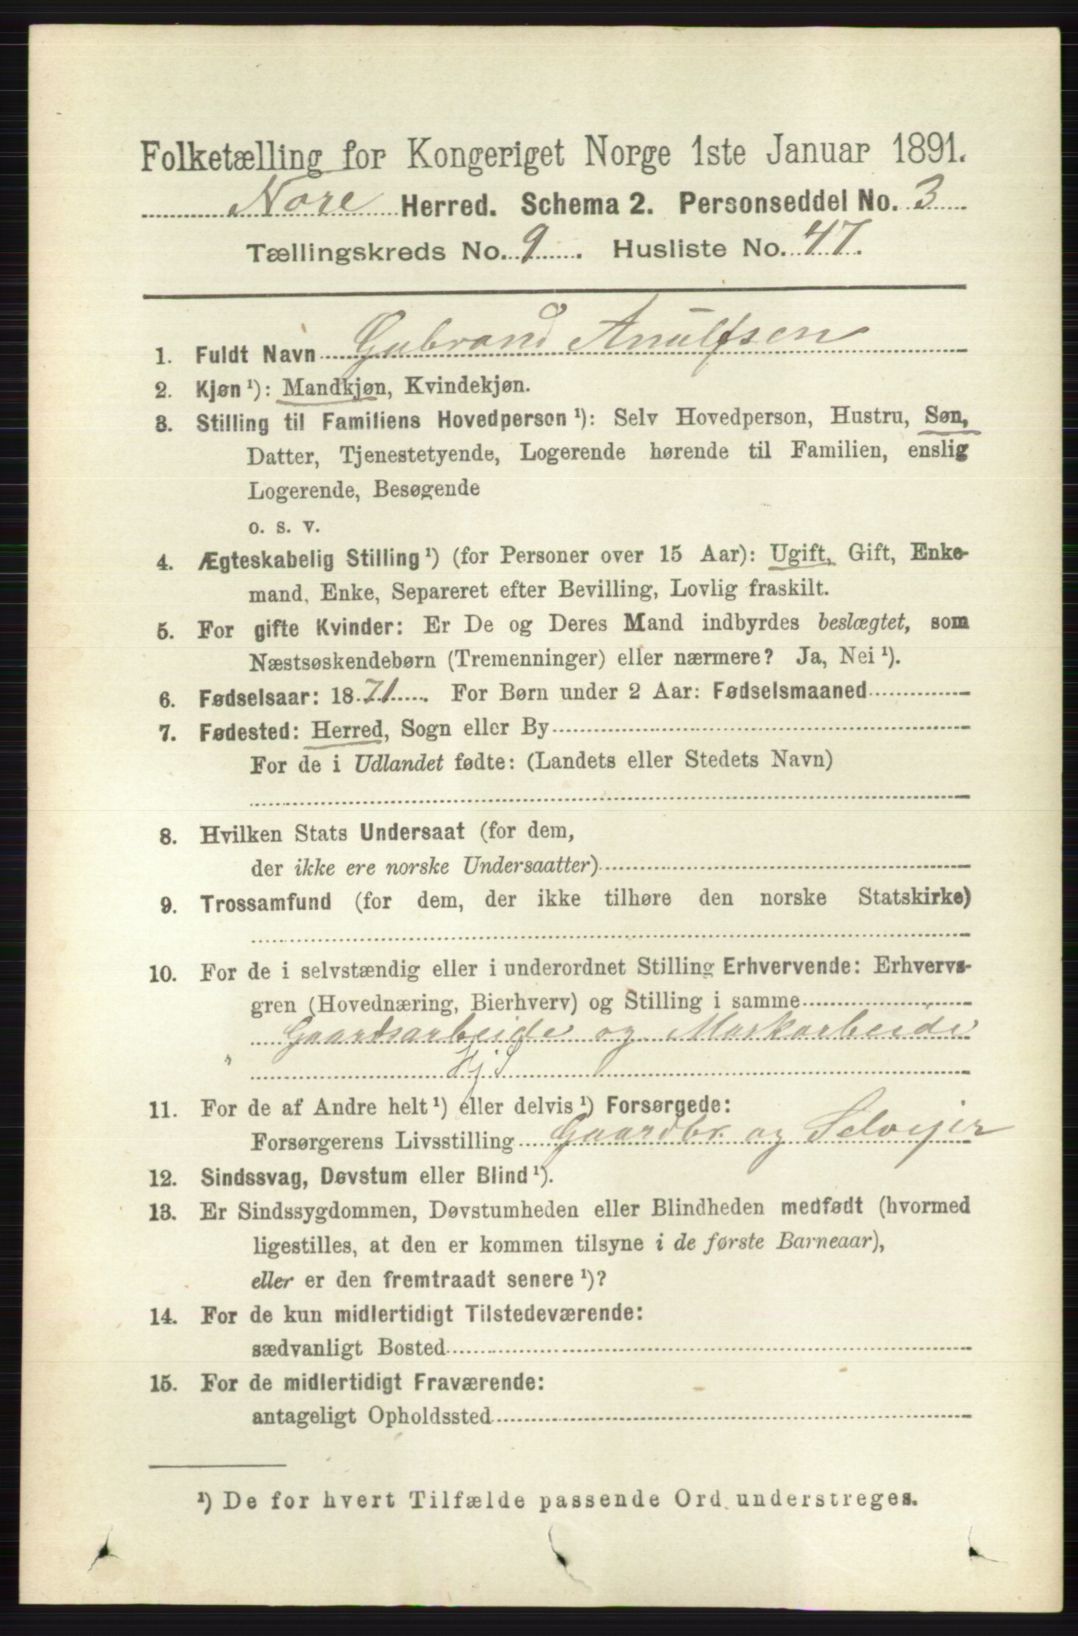 Folketælling for Kongeriget Norge 1ste Januar 1891.
Nore Herred. Schema 2. Personseddel No. 3
Tællingskreds No. 9. Husliste No. 47.
1. Fuldt Navn Gubrand Anulfsen
2. Kjøn ¹): Mandkjøn, Kvindekjøn.
3. Stilling til Familiens Hovedperson ¹): Selv Hovedperson, Hustru, Søn,
Datter, Tjenestetyende, Logerende hørende til Familien, enslig
Logerende, Besøgende
o. s. v.
4. Ægteskabelig Stilling ¹) (for Personer over 15 Aar): Ugift, Gift, Enke-
mand, Enke, Separeret efter Bevilling, Lovlig fraskilt.
5. For gifte Kvinder: Er De og Deres Mand indbyrdes beslægtet, som
Næstsøskendebørn (Tremenninger) eller nærmere? Ja, Nei ¹).
6. Fødselsaar: 1871. For Børn under 2 Aar: Fødselsmaaned
7. Fødested: Herred, Sogn eller By
For de i Udlandet fødte: (Landets eller Stedets Navn)
8. Hvilken Stats Undersaat (for dem,
der ikke ere norske Undersaatter)
9. Trossamfund (for dem, der ikke tilhøre den norske Statskirke)
10. For de i selvstændig eller i underordnet Stilling Erhvervende: Erhvervs-
gren (Hovednæring, Bierhverv) og Stilling i samme
Gaardsarbeide og Markarbeide
HjS
11. For de af Andre helt ¹) eller delvis ¹) Forsørgede:
Forsørgerens Livsstilling Gaardbr. og Selveier
12. Sindssvag, Døvstum eller Blind ¹).
13. Er Sindssygdommen, Døvstumheden eller Blindheden medfødt (hvormed
ligestilles, at den er kommen tilsyne i de første Barneaar),
eller er den fremtraadt senere ¹)?
14. For de kun midlertidigt Tilstedeværende:
sædvanligt Bosted
15. For de midlertidigt Fraværende:
antageligt Opholdssted
¹) De for hvert Tilfælde passende Ord understreges.